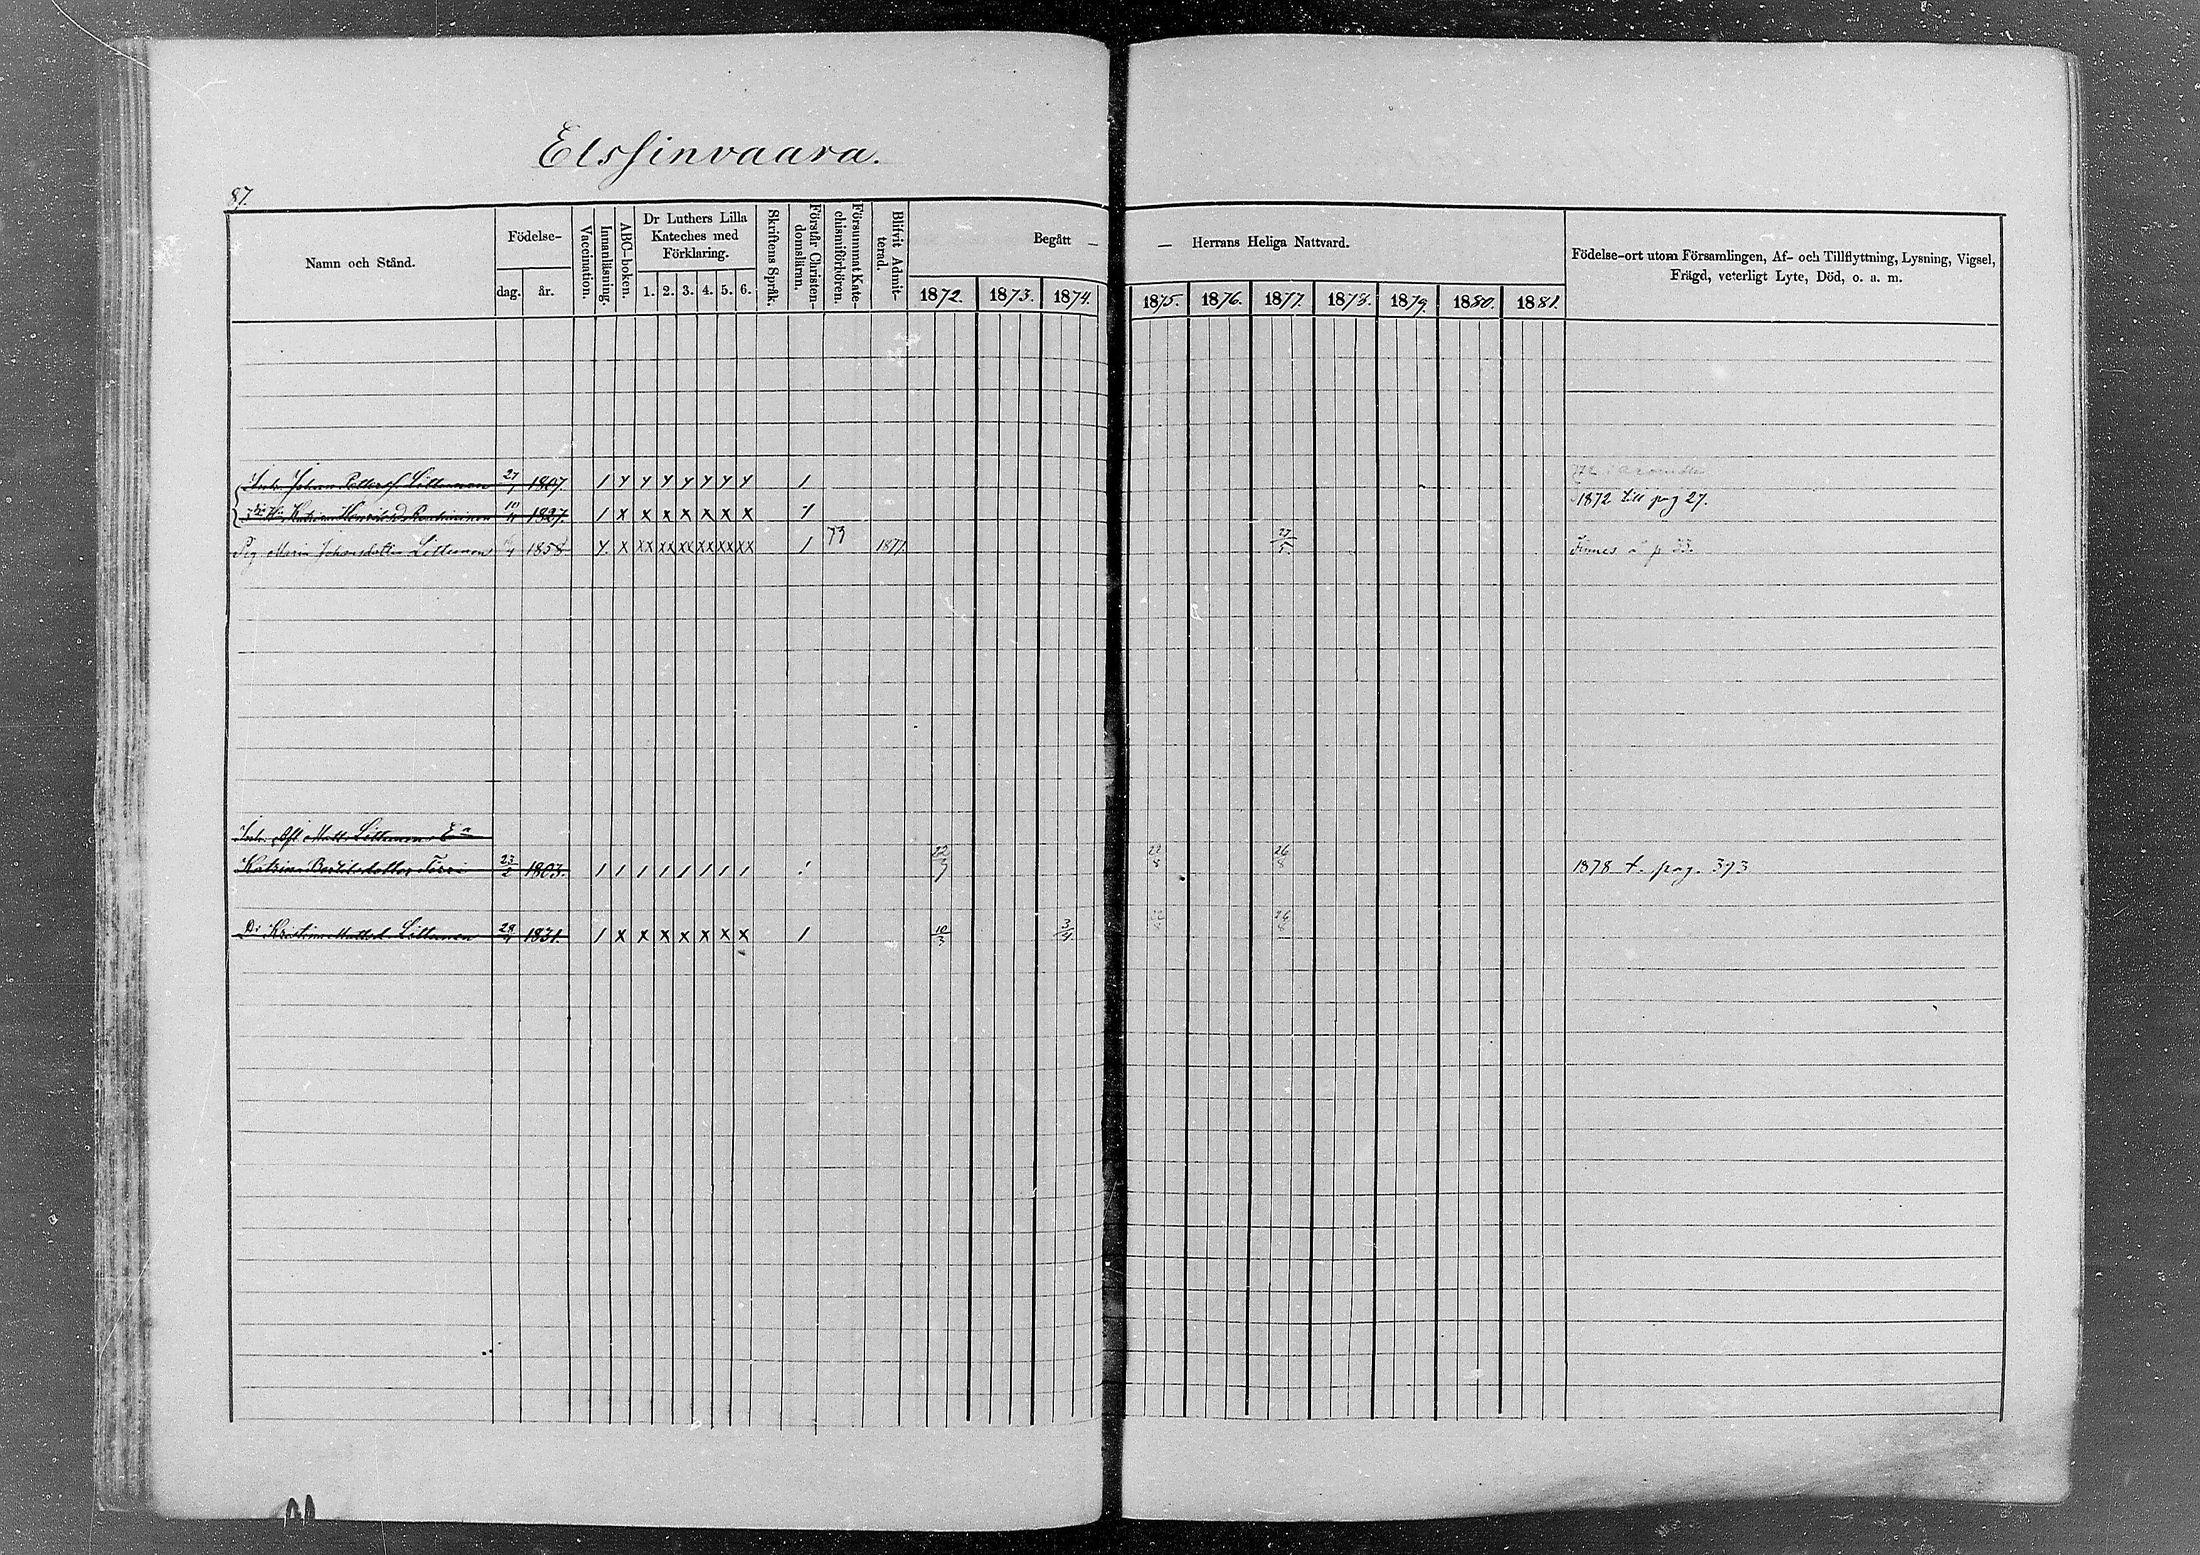 Elssinvaara.
87.
Namn och Stånd.
Födelse-
dag. år.
Vaccination.
Innanläsning.
ABC-boken.
Dr Luthers Lilla Kateches med Förklaring.
1. 2. 3. 4. 5. 6.
Skriftens Språk.
Förstår Christendomsläran.
Försummat Katechismiförhören.
Blifvit Admitterad.
Begått — — Herrans Heliga Nattvard.
1872. 1873. 1874. 1875. 1876. 1877. 1878. 1879. 1880. 1881.
Födelse-ort utom Församlingen, Af- och Tillflyttning, Lysning, Vigsel,
Frägd, veterligt Lyte, Död, o. a. m.
Johan Littunen 27 1807. 1 x x x x x x x 1
Katrin 10 1827. 1 x x x x x x x 1 1872 till pag 27.
Pig Maria Johansdotter Littunen 1858 x xx xx xx xx xx xx 1 73 1877. 27/5. Finnes å p 33.
Matts Littunen Ea
Katrina Bertilsdotter 23/2 1803. 1 1 1 1 1 1 1 1 22 22/8 26/8 1878 t. pag. 393
Dr Kristina Mattsd. Littunen 28 1831. 1 x x x x x x x 1 10/3 3/4 22 26/8